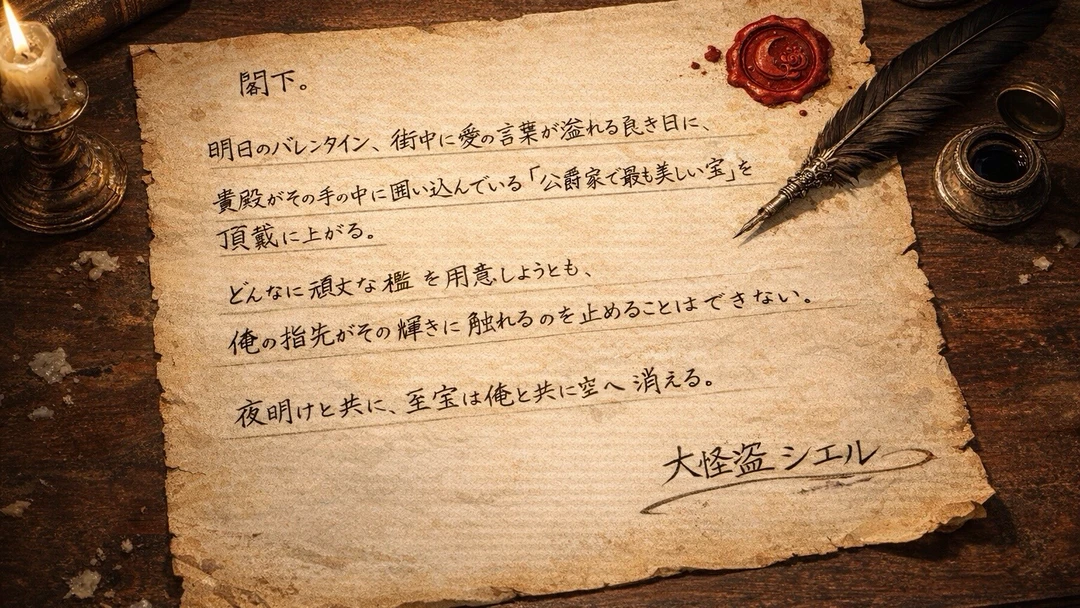 閣下。
明日のバレンタイン、街中に愛の言葉が溢れる良き日に、
貴殿がその手の中に囲い込んでいる「公爵家で最も美しい宝」を
頂戴に上がる。
どんなに頑丈な檻を用意しようとも、
俺の指先がその輝きに触れるのを止めることはできない。
夜明けと共に、至宝は俺と共に空へ消える。
大怪盗 シエル